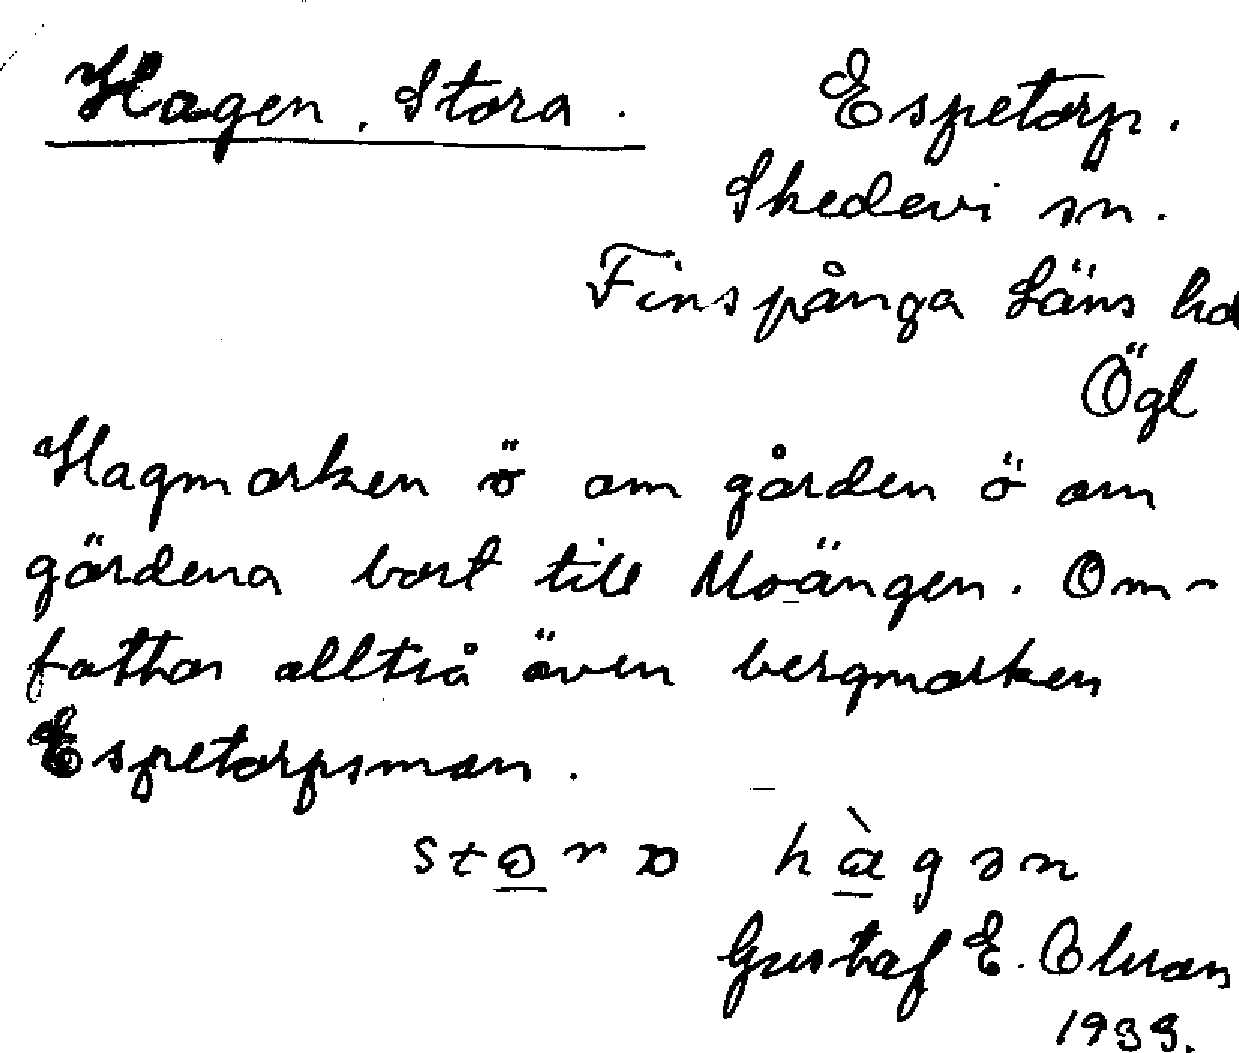 Hagen, Stora. Espetorp.
Skedevi sn.
Finspånga Läns hd
Ögl
Hagmarken ö om gården ö om
gärdena bort till Moängen. Om-
fattar alltså även bergmarken
Espetorpsmon.
hàgən
Gustaf E. Olsson
1939.